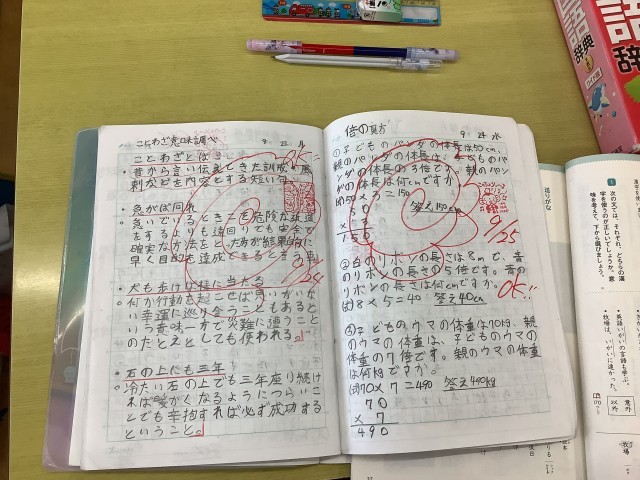 ことわざ意味調べ
9 22 月
ことわざとは?
・昔から言い伝えてきた訓
刺などを内容とする短い句
・急がば回れ
急いでいるときこそ危険な近道
をするよりも遠回りでも安全で
確実な方法をとった方が結果的に
早く目的も達成できるという事
・犬も歩けば棒に当たる
何か行動を起こせば思いがいな
い幸運に巡り会うこともあると
いう意味一方で災難に遭うこと
のたとえとしても使われる。
・石の上にも三年
冷たい石の上でも三年座り続け
れば暖かくなるようにつらいこ
とでも辛抱すれば必ず成功する
ということ。
OK!!
9/24
倍の見方
9 24 水
①子どものパンダの体長は50cm、
親のパンダの体長は、子どものパン
ダの体長の3倍です。親のパン
ダの体長は何cmですか。
(式)50×3=150
答え150cm
50
×3
150
9/25
②白のリボンの長さは8mで、青
のリボンの長さの5倍です。青の
リボンの長さは何cmですか。
(式)8×5=40 答え40cm
OK!!
③子どものウマの体重は70kg、親
のウマの体重は、子どものウマの
体重の7倍です。親のウマの体重
は何kgですか。
(式)70×7=490 答え490kg
70
×7
490
語
辞典
語
辞
1
次の文では、それぞれ、どちらの漢
字を使うのが正しいでしょうか。意
味を考えて、下から選びましょう。
・英語いがいの言語も学ぶ。
・牧場は、いがいに遠かった。
以外
意外
送りがな
37